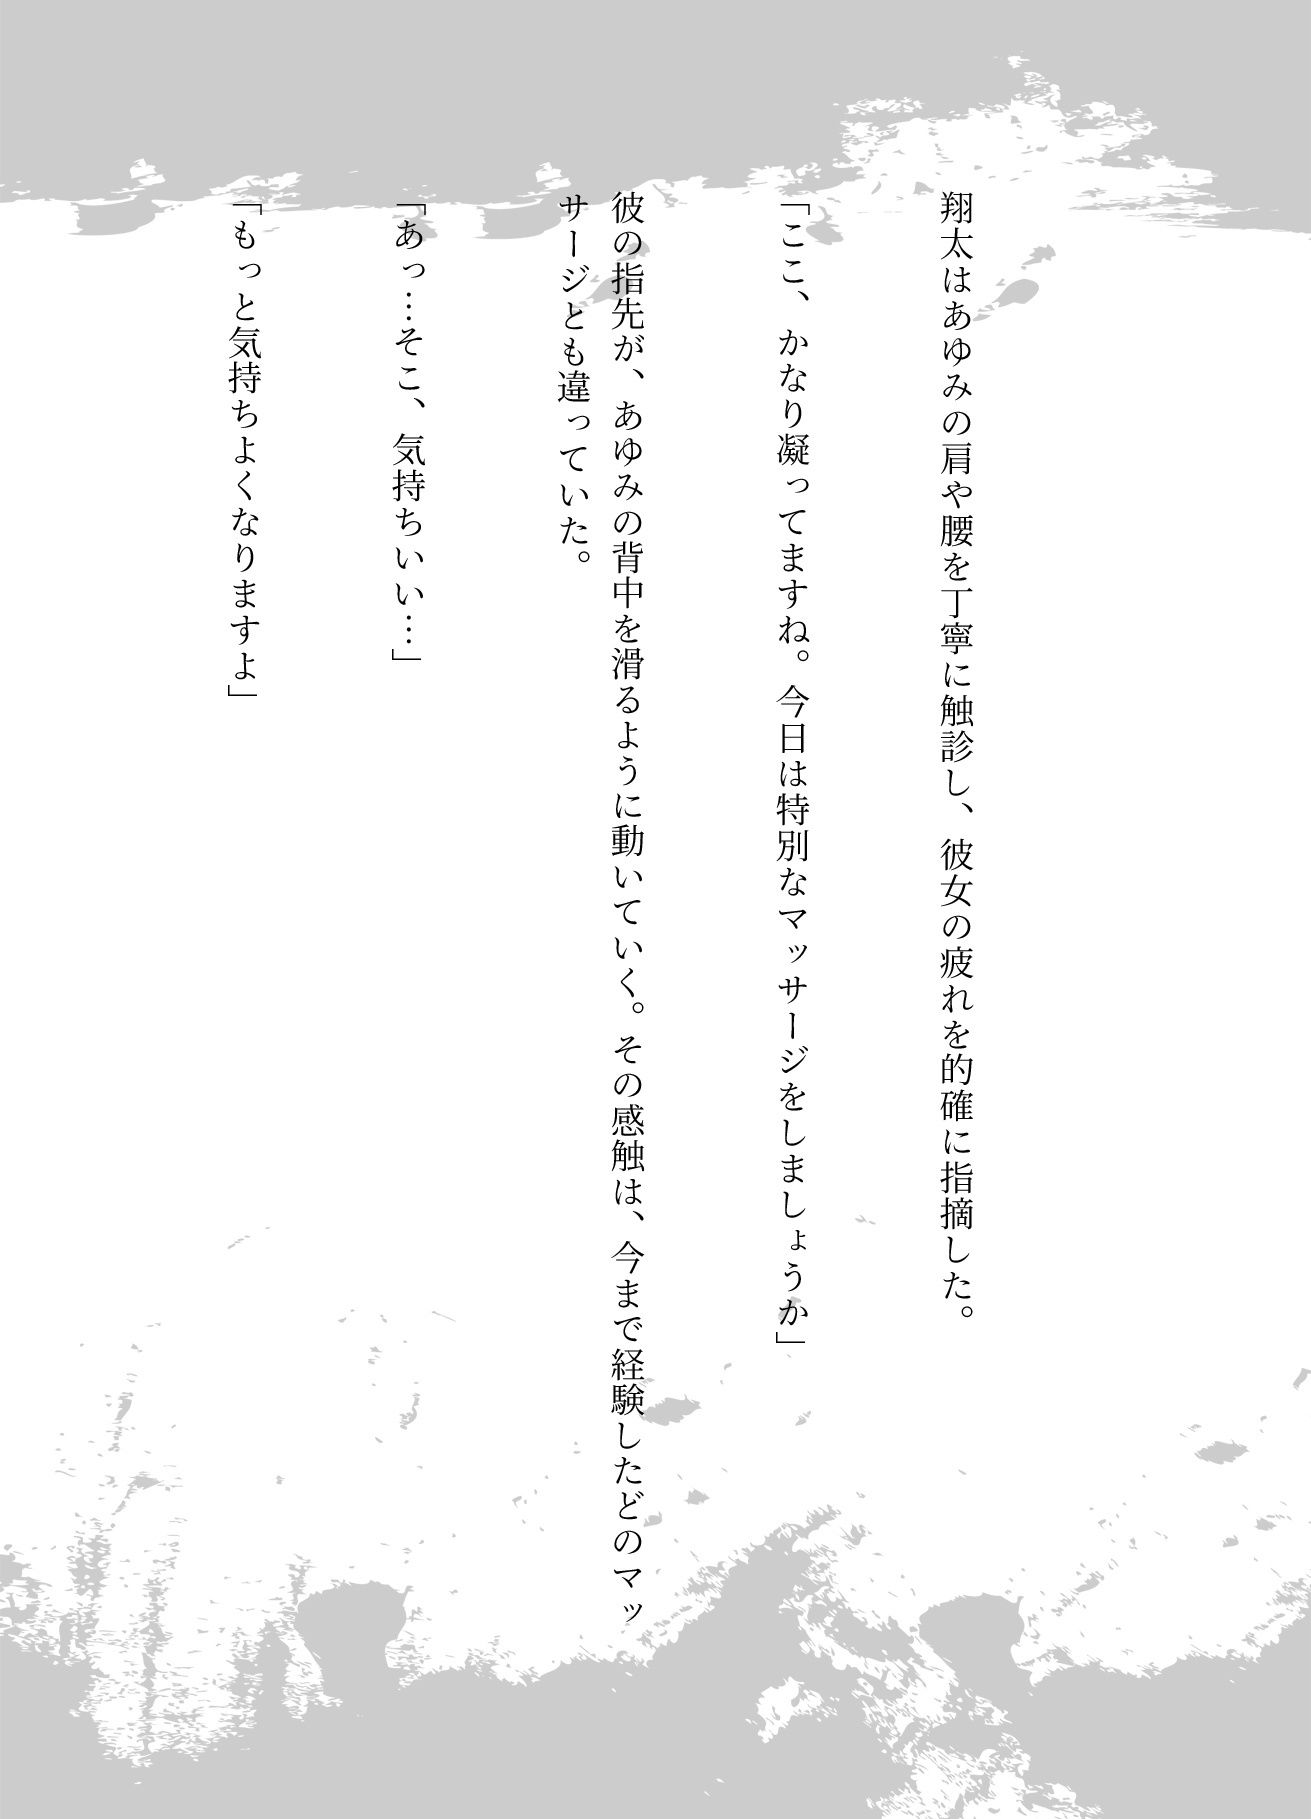 翔太はあゆみの肩や腰を丁寧に触診し、彼女の疲れを的確に指摘した。
「ここ、かなり凝ってますね。今日は特別なマッサージをしましょうか」
彼の指先が、あゆみの背中を滑るように動いていく。その感触は、今まで経験したどのマッ
サージとも違っていた。
「あっ…そこ、気持ちいい…」
「もっと気持ちよくなりますよ」